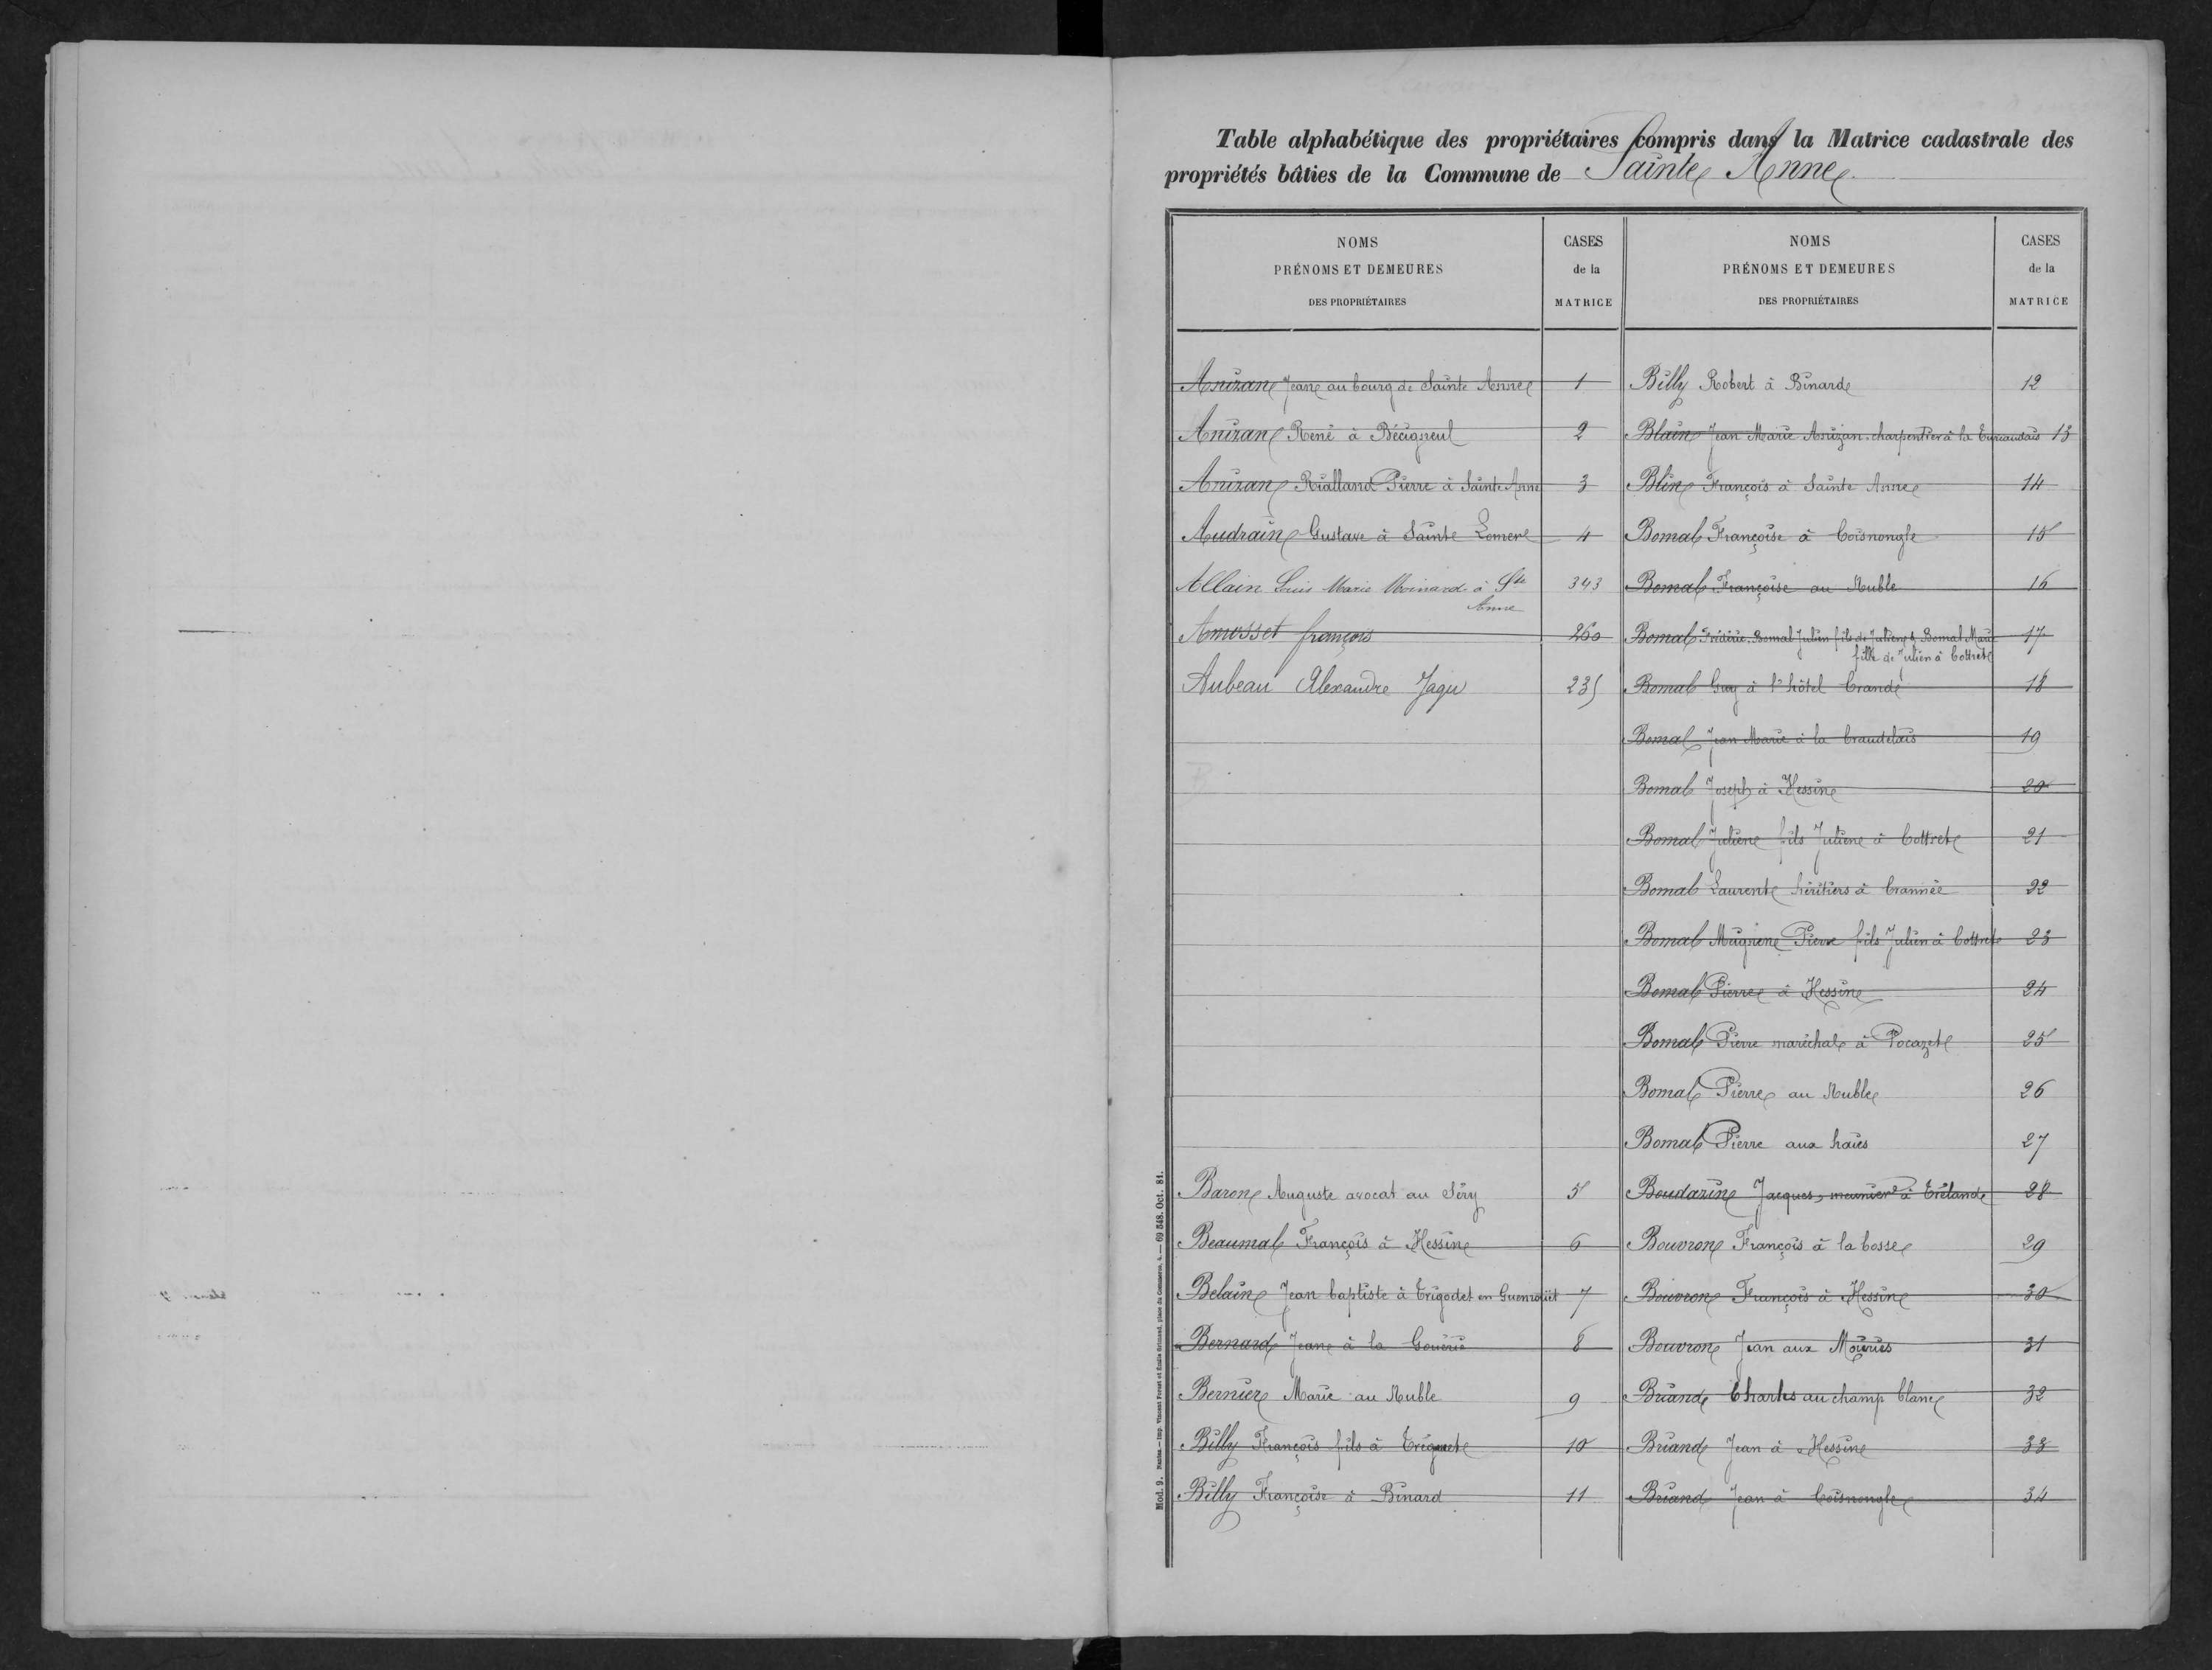 Table alphabétique des propriétaires compris dans la Matrice cadastrale des
propriétés bâties de la Commune de Sainte Anne
NOMS
PRÉNOMS ET DEMEURES
DES PROPRIÉTAIRES
CASES
de la
MATRICE
NOMS
PRÉNOMS ET DEMEURES
DES PROPRIÉTAIRES
CASES
de la
MATRICE
Anizan Jean au bourg de Sainte Anne 1
Anizan René à Bécigneul 2
Anizan Rialland Pierre à Sainte Anne 3
Audrain Gustave à Sainte Lomer 4
Allain Louis Marie Moinard à Ste Anne 343
Amosset françois 260
Aubeau Alexandre Jagu 235
B
Baron Auguste avocat au Séry 5
Beaumal François à Hessin 6
Belain Jean baptiste à Trigodet en Guenrouët 7
Bernard Jean à la Gouérie 8
Bernier Marie au Ruble 9
Billy François fils à 10
Billy Françoise à Binard 11
Billy Robert à Binard 12
Blain Jean Marie Anizan charpentier à la 13
Blin François à Sainte Anne 14
Bomal Françoise à Coisnongle 15
Bomal Françoise au Ruble 16
Bomal Frédéric Bomal Julien fils de Julien & Bomal Marie
fille de Julien à Cottret 17
Bomal Guy à l'hôtel Crand 18
Bomal Jean Marie à la Craudelais 19
Bomal Joseph à Hessin 20
Bomal Julien fils Julien à Cottret 21
Bomal Laurent héritiers à Crannée 22
Bomal Mugnier Pierre fils Julien à Cottret 23
Bomal Pierre à Hessin 24
Bomal Pierre maréchal à Pocazet 25
Bomal Pierre au Ruble 26
Bomal Pierre aux haies 27
Boudazin Jacques, meunier à Trélan 28
Bouvron François à la bosse 29
Bouvron François à Hessin 30
Bouvron Jean aux Moiries 31
Briand Charles au champ blanc 32
Briand Jean à Hessin 33
Briand Jean à Coisnongle 34
Mod. 9. Nantes. — Imp. Vincent Forest et Émile Grimaud, place du Commerce, 4. — 69 348. Oct. 81.